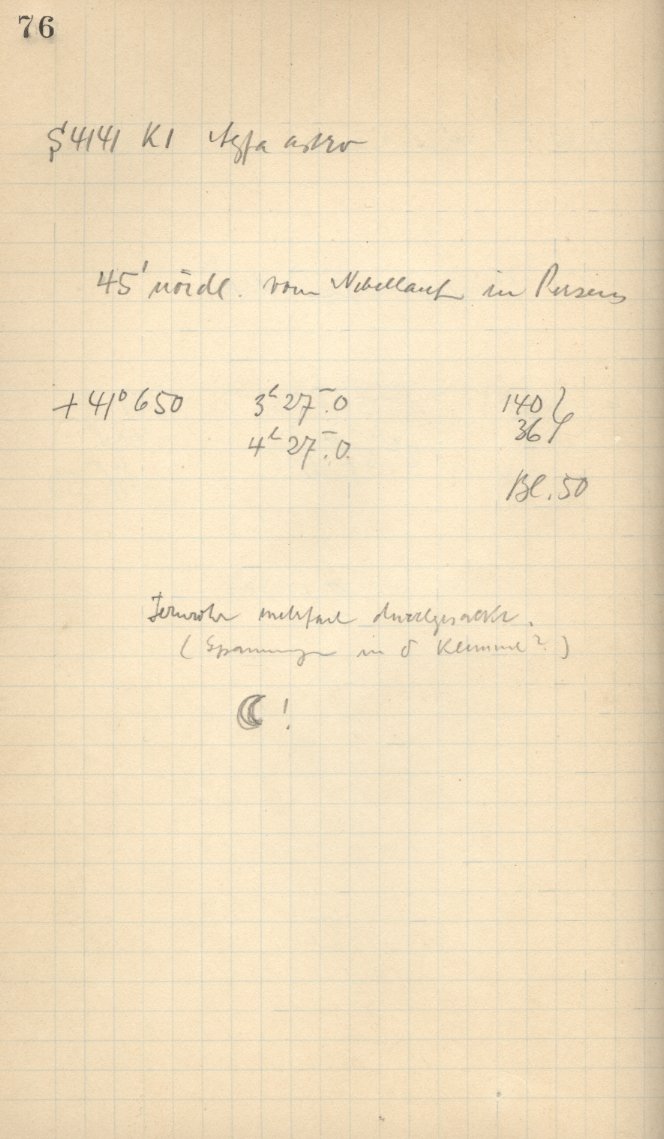 76
S 4141 K1 Agfa astro
45' nördl. vom in Perseus
+41° 650 3h 27m.0 140
4h 27m.0 36
Bl. 50
Fernrohr mehrfach durchgesackt.
(Spannungen in δ Klemme?)
☾!